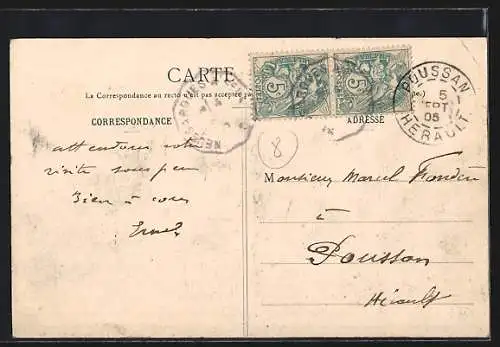 CARTE
La Correspondance au recto n'est pas acceptée pa
CORRESPONDANCE
ADRESSE
5
5
POUSSAN
5
SEPT
05
HÉRAULT
8
attendons votre
visite sous peu
Bien à vous
Monsieur Marcel
à
Poussan
Hérault